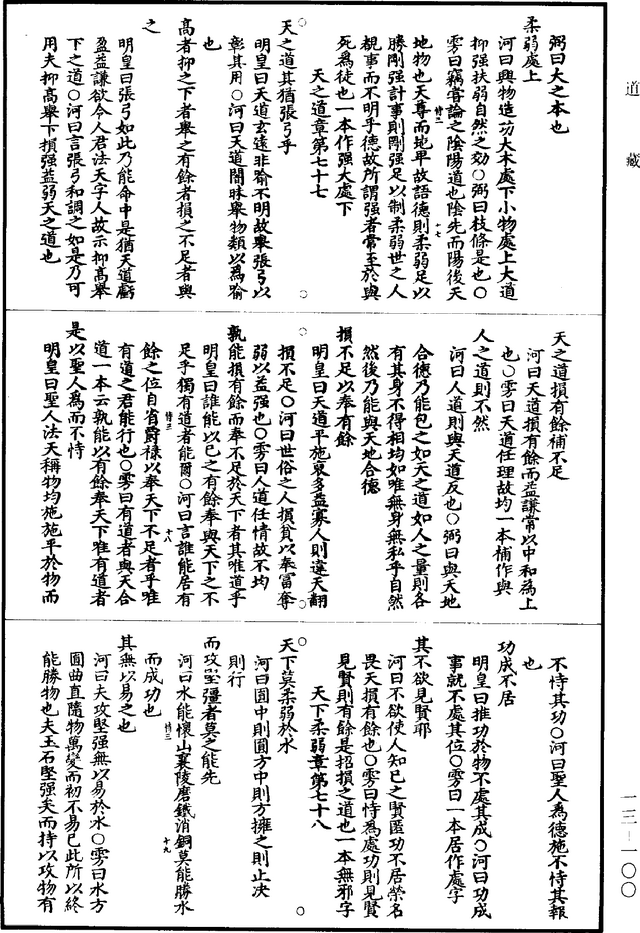 道藏
弼曰大之本也
柔弱處上
河曰興物造功大木處下小物處上大道
抑強扶弱自然之効○弼曰枝條是也○
雱曰竊嘗論之陰陽道也陰先而陽後天
地物也天尊而地卑故語德則柔弱足以
勝剛強計事則剛強足以制柔弱世之人
覩事而不明乎德故所謂強者常至於與
死為徒也一本作强大處下
天之道章第七十七
天之道其猶張弓乎
明皇曰天道玄遠非喻不明故舉張弓以
彰其用○河曰天道闇昧舉物類以為喻
也
高者抑之下者舉之有餘者損之不足者與
之
明皇曰張弓如此乃能命中是猶天道虧
盈益謙欲令人君法天字人故示抑高舉
下之道○河曰言張弓和調之如是乃可
用夫抑高舉下損強益弱天之道也
天之道損有餘補不足
河曰天道損有餘而益謙常以中和為上
也○雱曰天道任理故均一本補作與
人之道則不然
河曰人道則與天道反也○弼曰與天地
合德乃能包之如天之道如人之量則各
有其身不得相均如唯無身無私乎自然
然後乃能與天地合德
損不足以奉有餘
明皇曰天道平施裒多益寡人則違天翻
損不足○河曰世俗之人損貧以奉富奪
弱以益強也○雱曰人道任情故不均
孰能損有餘而奉不足於天下者其唯道乎
明皇曰誰能以已之有餘奉與天下之不
足乎獨有道者能爾○河曰言誰能居有
餘之位自省爵祿以奉天下不足者乎唯
有道之君能行也○雱曰有道者與天合
道一本云孰能以有餘奉天下唯有道者
是以聖人為而不恃
明皇曰聖人法天稱物均施施平於物而
不恃其功○河曰聖人為德施不恃其報
也
功成不居
明皇曰推功於物不處其成○河曰功成
事就不處其位○雱曰一本居作處字
其不欲見賢耶
河曰不欲使人知已之賢匿功不居榮名
畏天損有餘也○雱曰恃為處功則見賢
見賢則有餘是招損之道也一本無邪字
天下柔弱章第七十八
天下莫柔弱於水
河曰圓中則圓方中則方擁之則止決
則行
而攻堅彊者莫之能先
河曰水能懷山襄陵磨鐵消銅莫能勝水
而成功也
其無以易之也
河曰夫攻堅強無以易於水○雱曰水方
圓曲直隨物萬變而初不易已此所以終
能勝物也夫玉石堅強矣而持以攻物有
一三—一〇〇